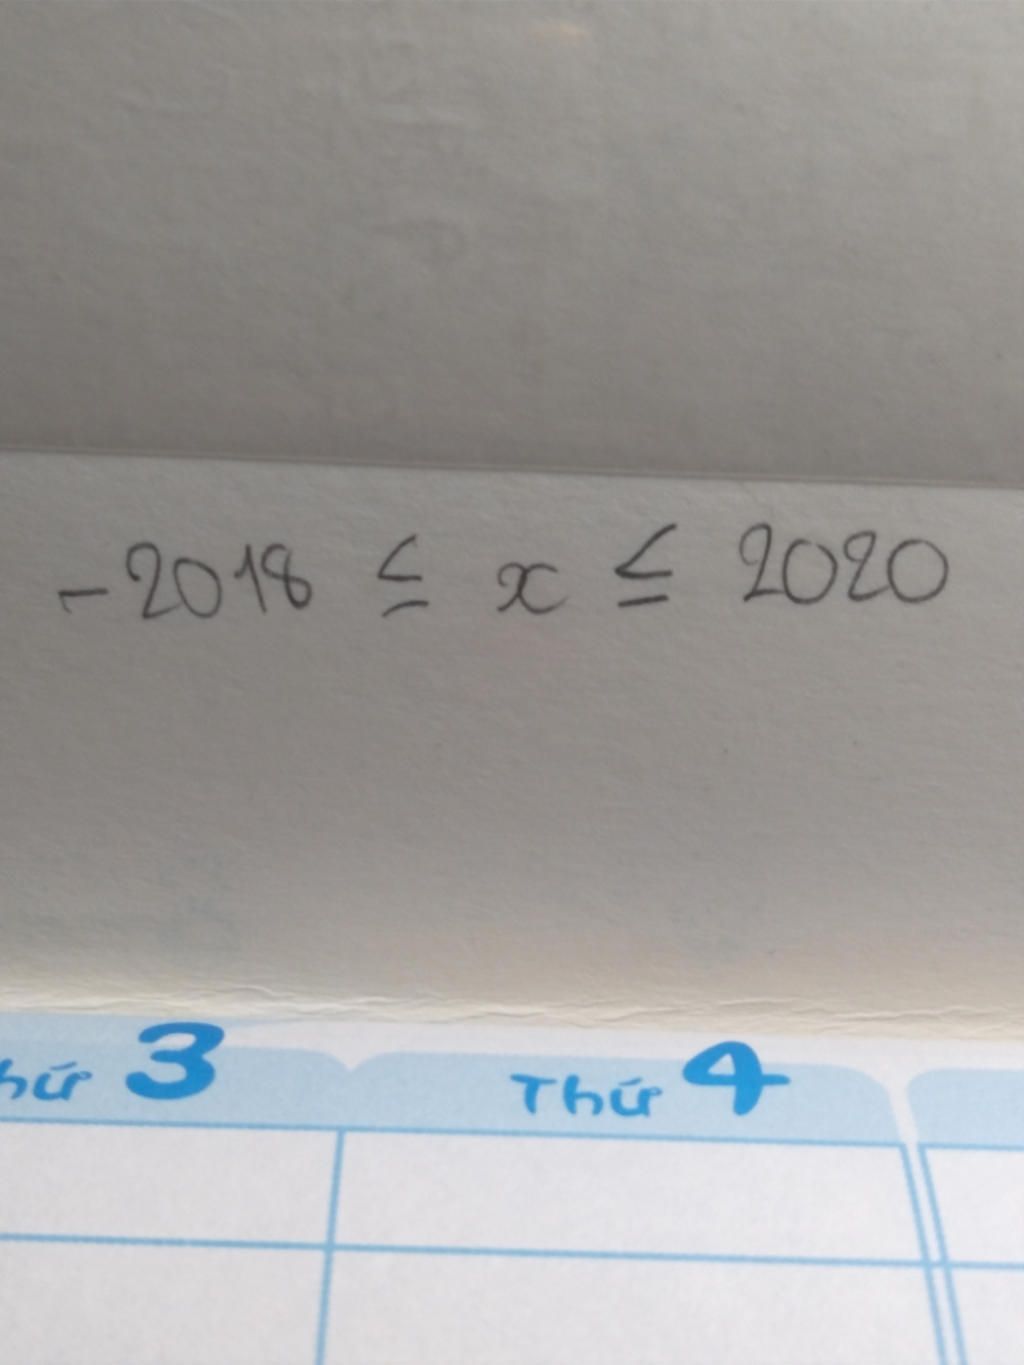 -2018 ≤ x ≤ 2020
hứ 3 Thứ 4